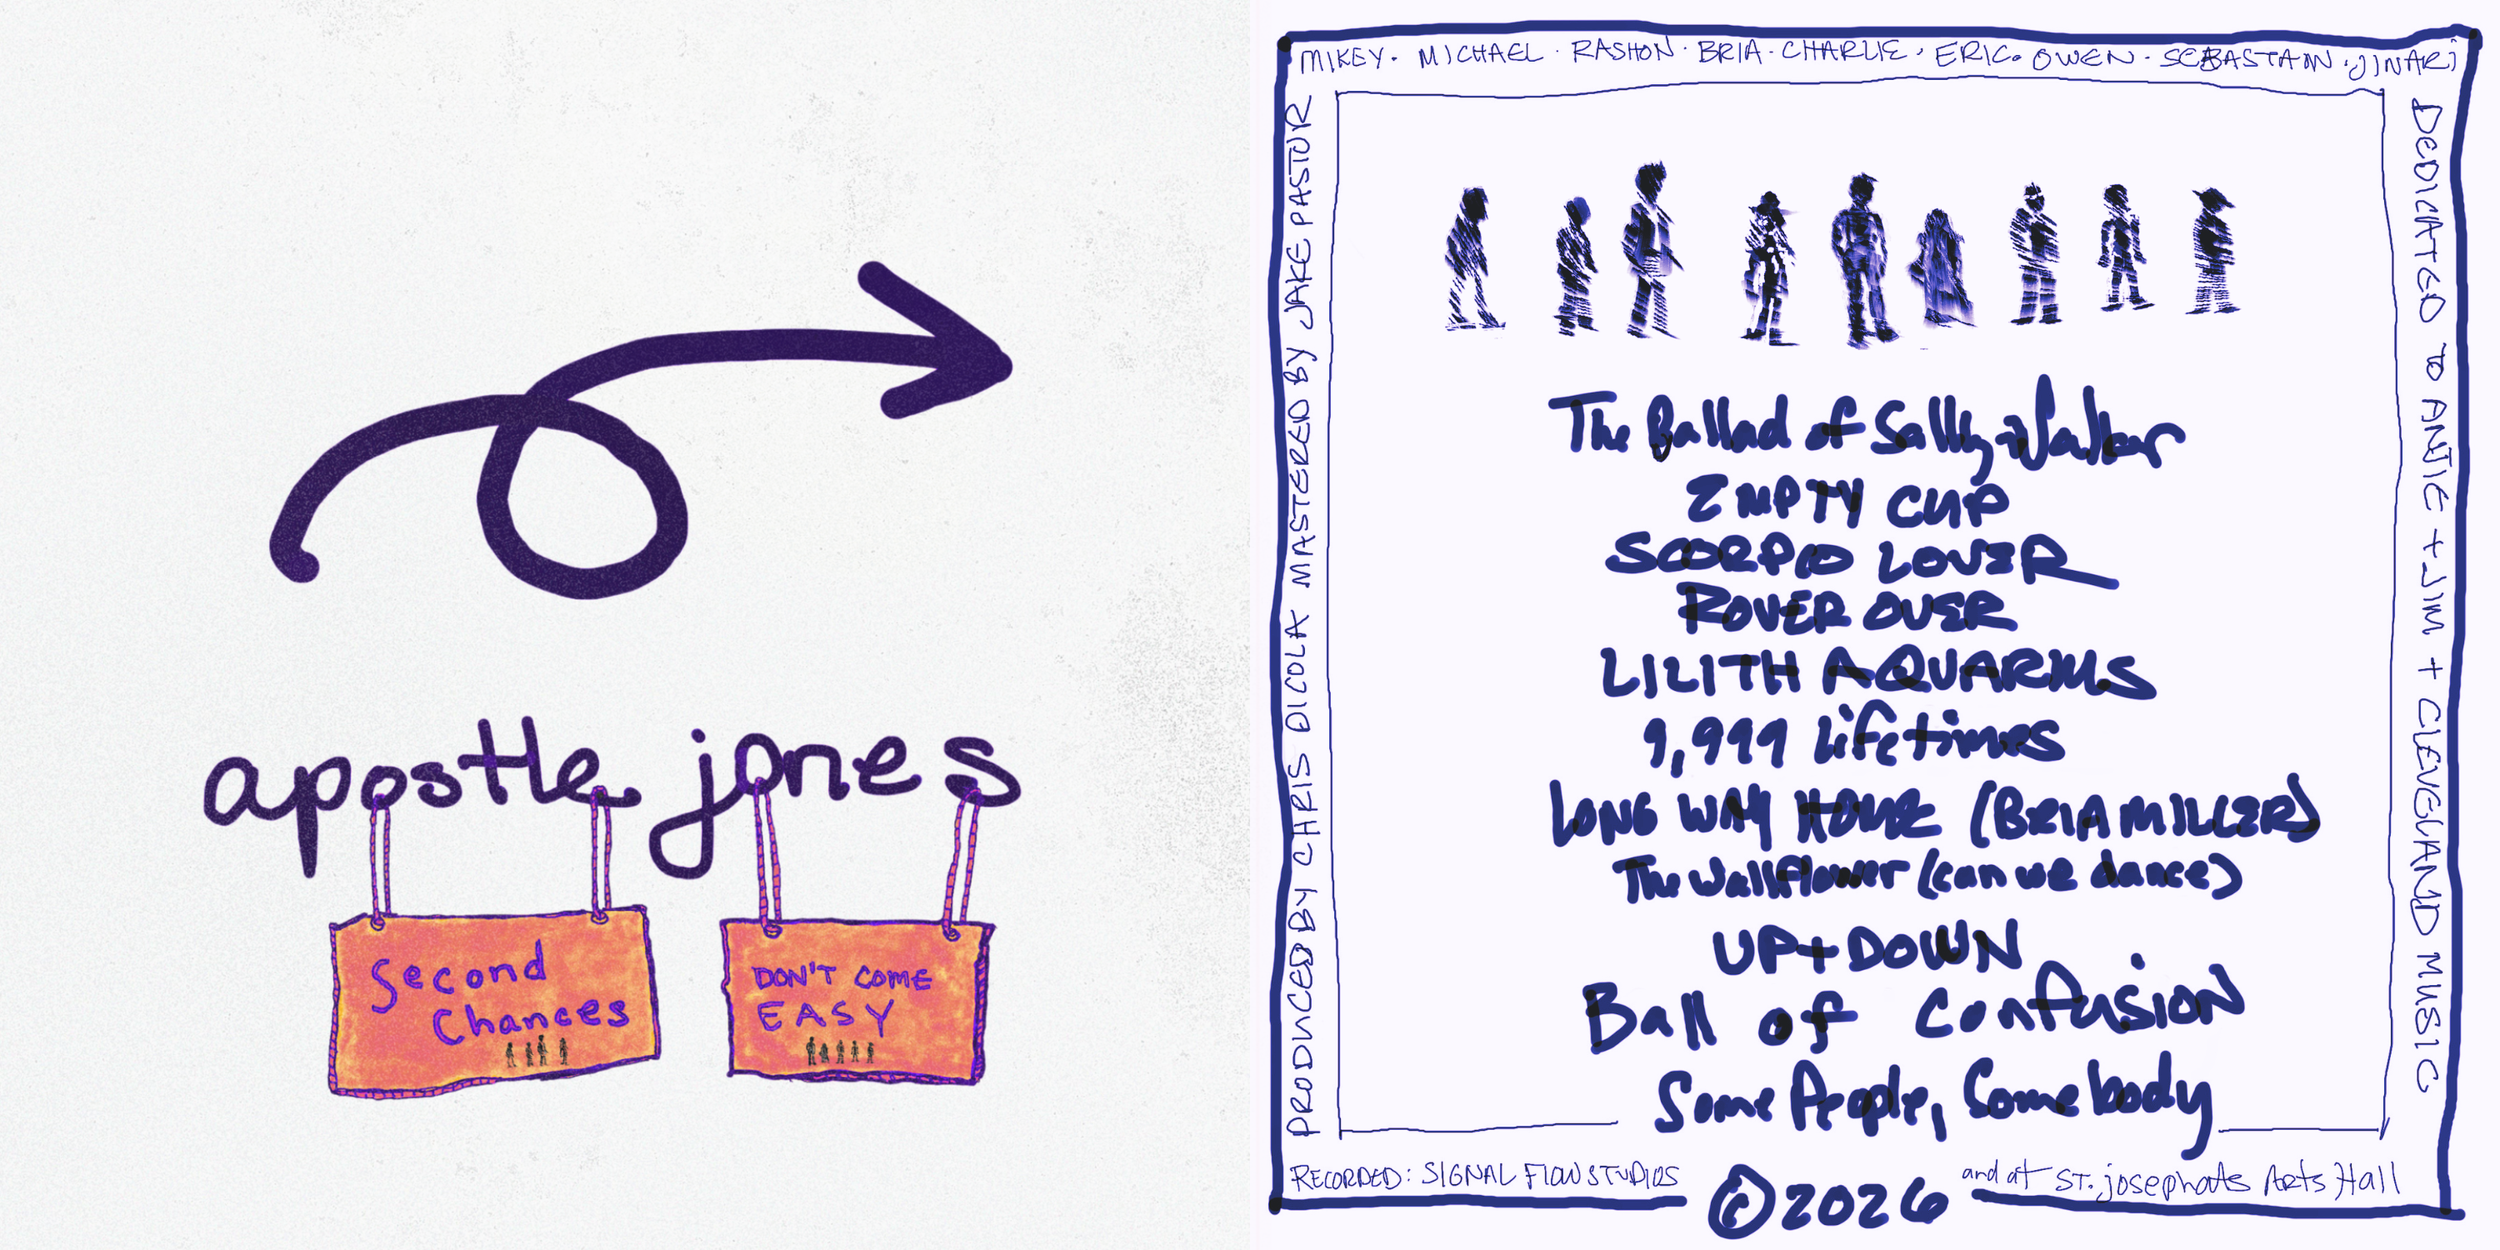 apostle jones
Second
Chances
DON'T COME
EASY
MIKEY. MICHAEL. RASHON. BRIA. CHARLIE. ERIC. OWEN. SEBASTAIN. JINARI
PRODUCED BY CHRIS DICOLA MASTERED BY JAKE PASTUR
DEDICATED TO ANTIE + JIM + CLEVELAND MUSIC
The Ballad of Sally Walker
EMPTY CUP
SCORPIO LOVER
ROVER OVER
LILITH AQUARIUS
9,999 Lifetimes
LONG WAY HOME (BRIA MILLER)
The Wallflower (can we dance)
UP + DOWN
Ball of Confusion
Some People, Somebody
RECORDED: SIGNAL FLOW STUDIOS
and at ST. josephats Arts Hall
©2026